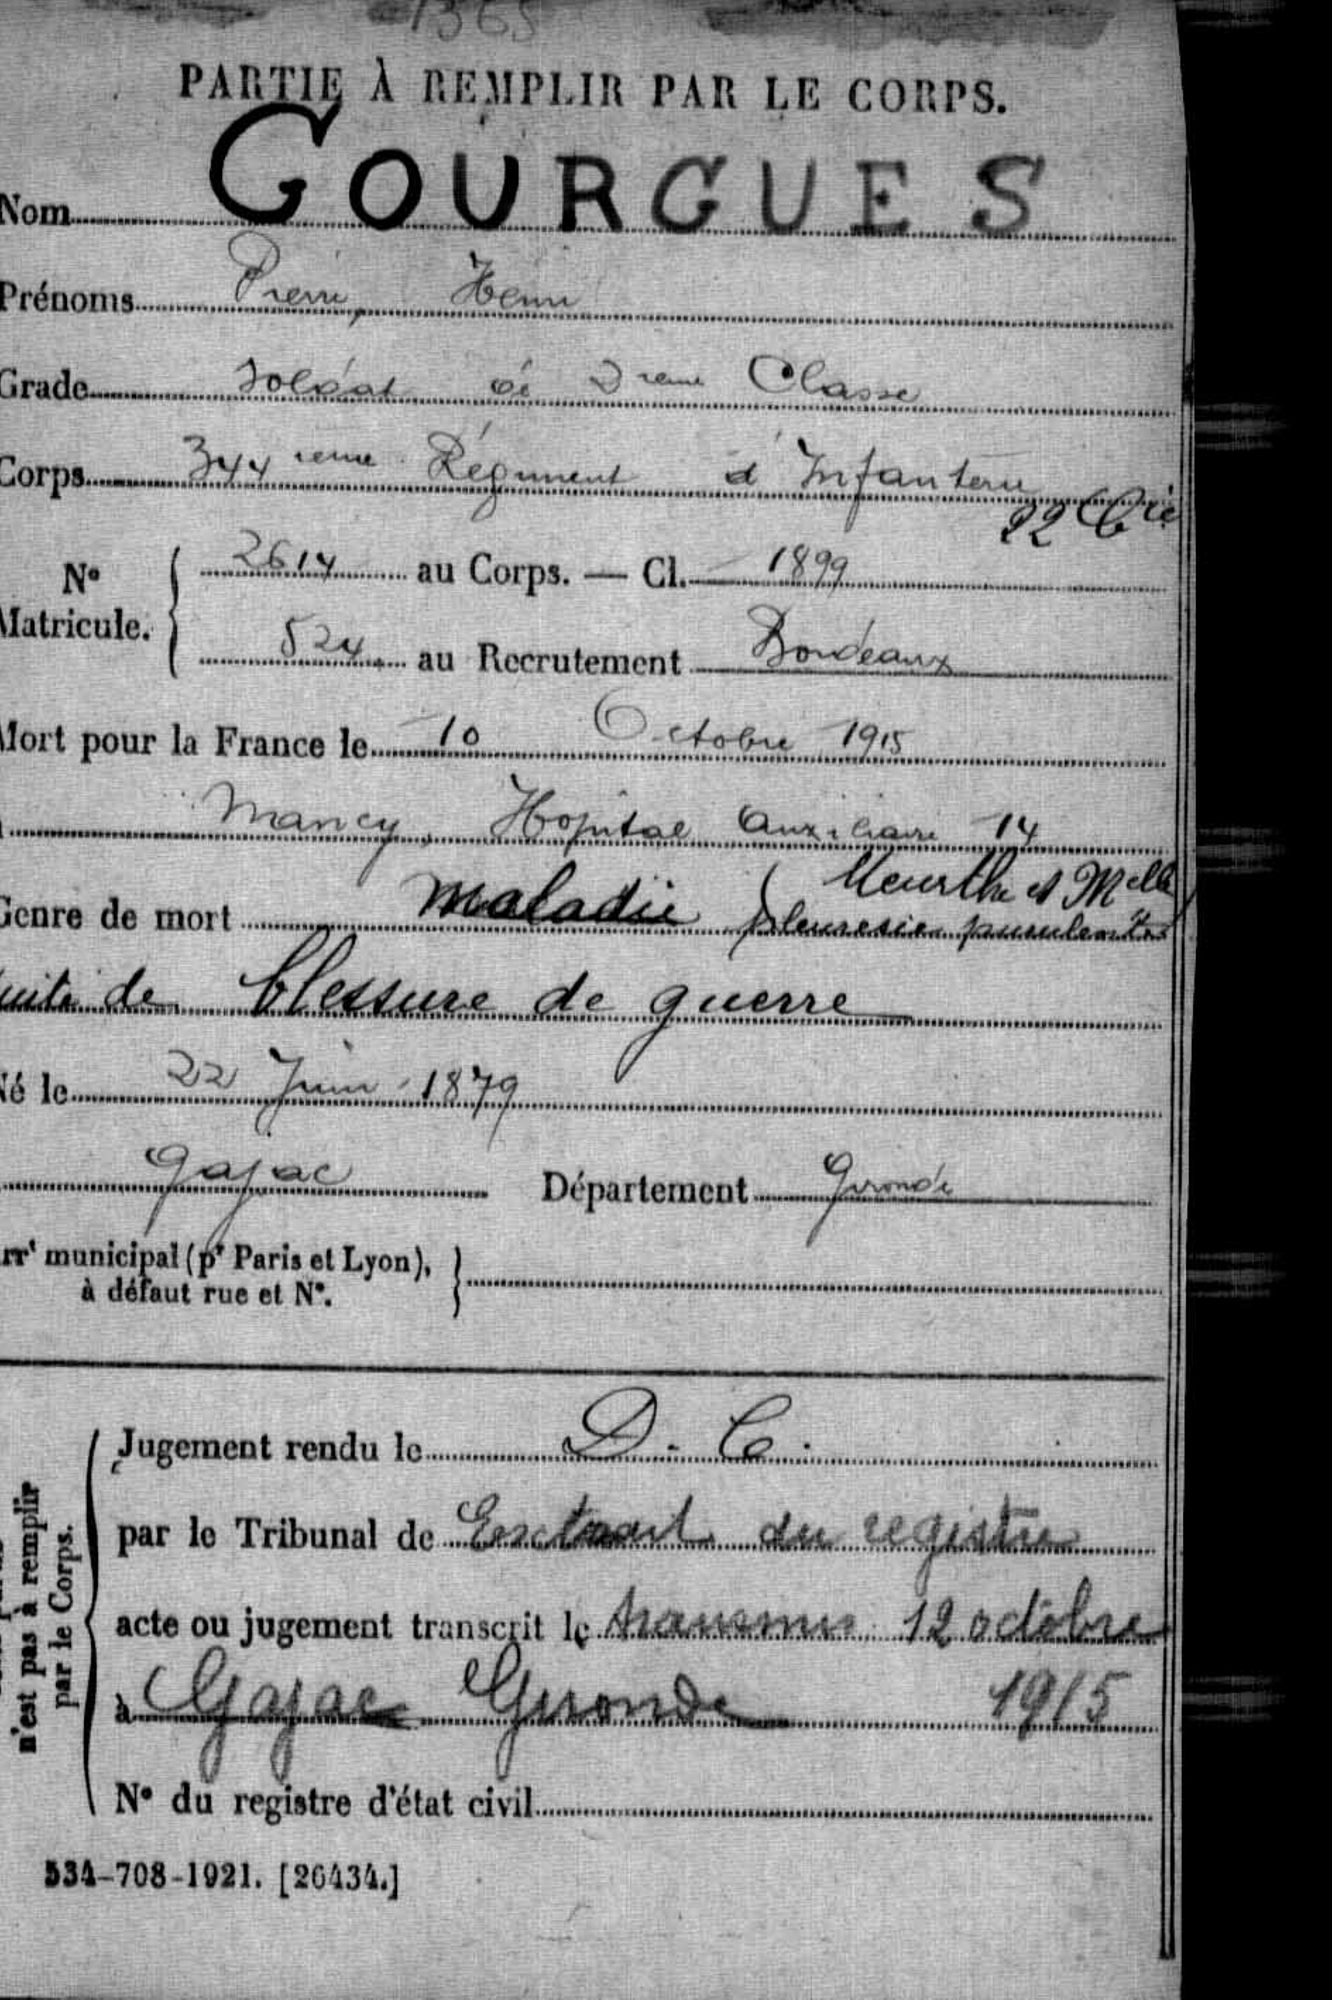 1365
PARTIE À REMPLIR PAR LE CORPS.
Nom GOURGUES
Prénoms Pierre, Henri
Grade Soldat de 2ieme Classe
Corps 344 ieme Régiment d'Infanterie
22 Cie
No Matricule. 2614 au Corps. — Cl. 1899
524 au Recrutement Bordeaux
Mort pour la France le 10 Octobre 1915
Nancy, Hopital Auxiliaire 14
Meurthe et Melle
Genre de mort maladie (pleuresie purulente)
suite de blessure de guerre
Né le 22 Juin 1879
Gajac Département Gironde
arrt municipal (pr Paris et Lyon),
à défaut rue et No.
n'est pas à remplir
par le Corps.
Jugement rendu le D. C.
par le Tribunal de Extrait du registre
acte ou jugement transcrit le transmis 12 octobre
à Gajac Gironde 1915
No du registre d'état civil
534-708-1921. [26434.]